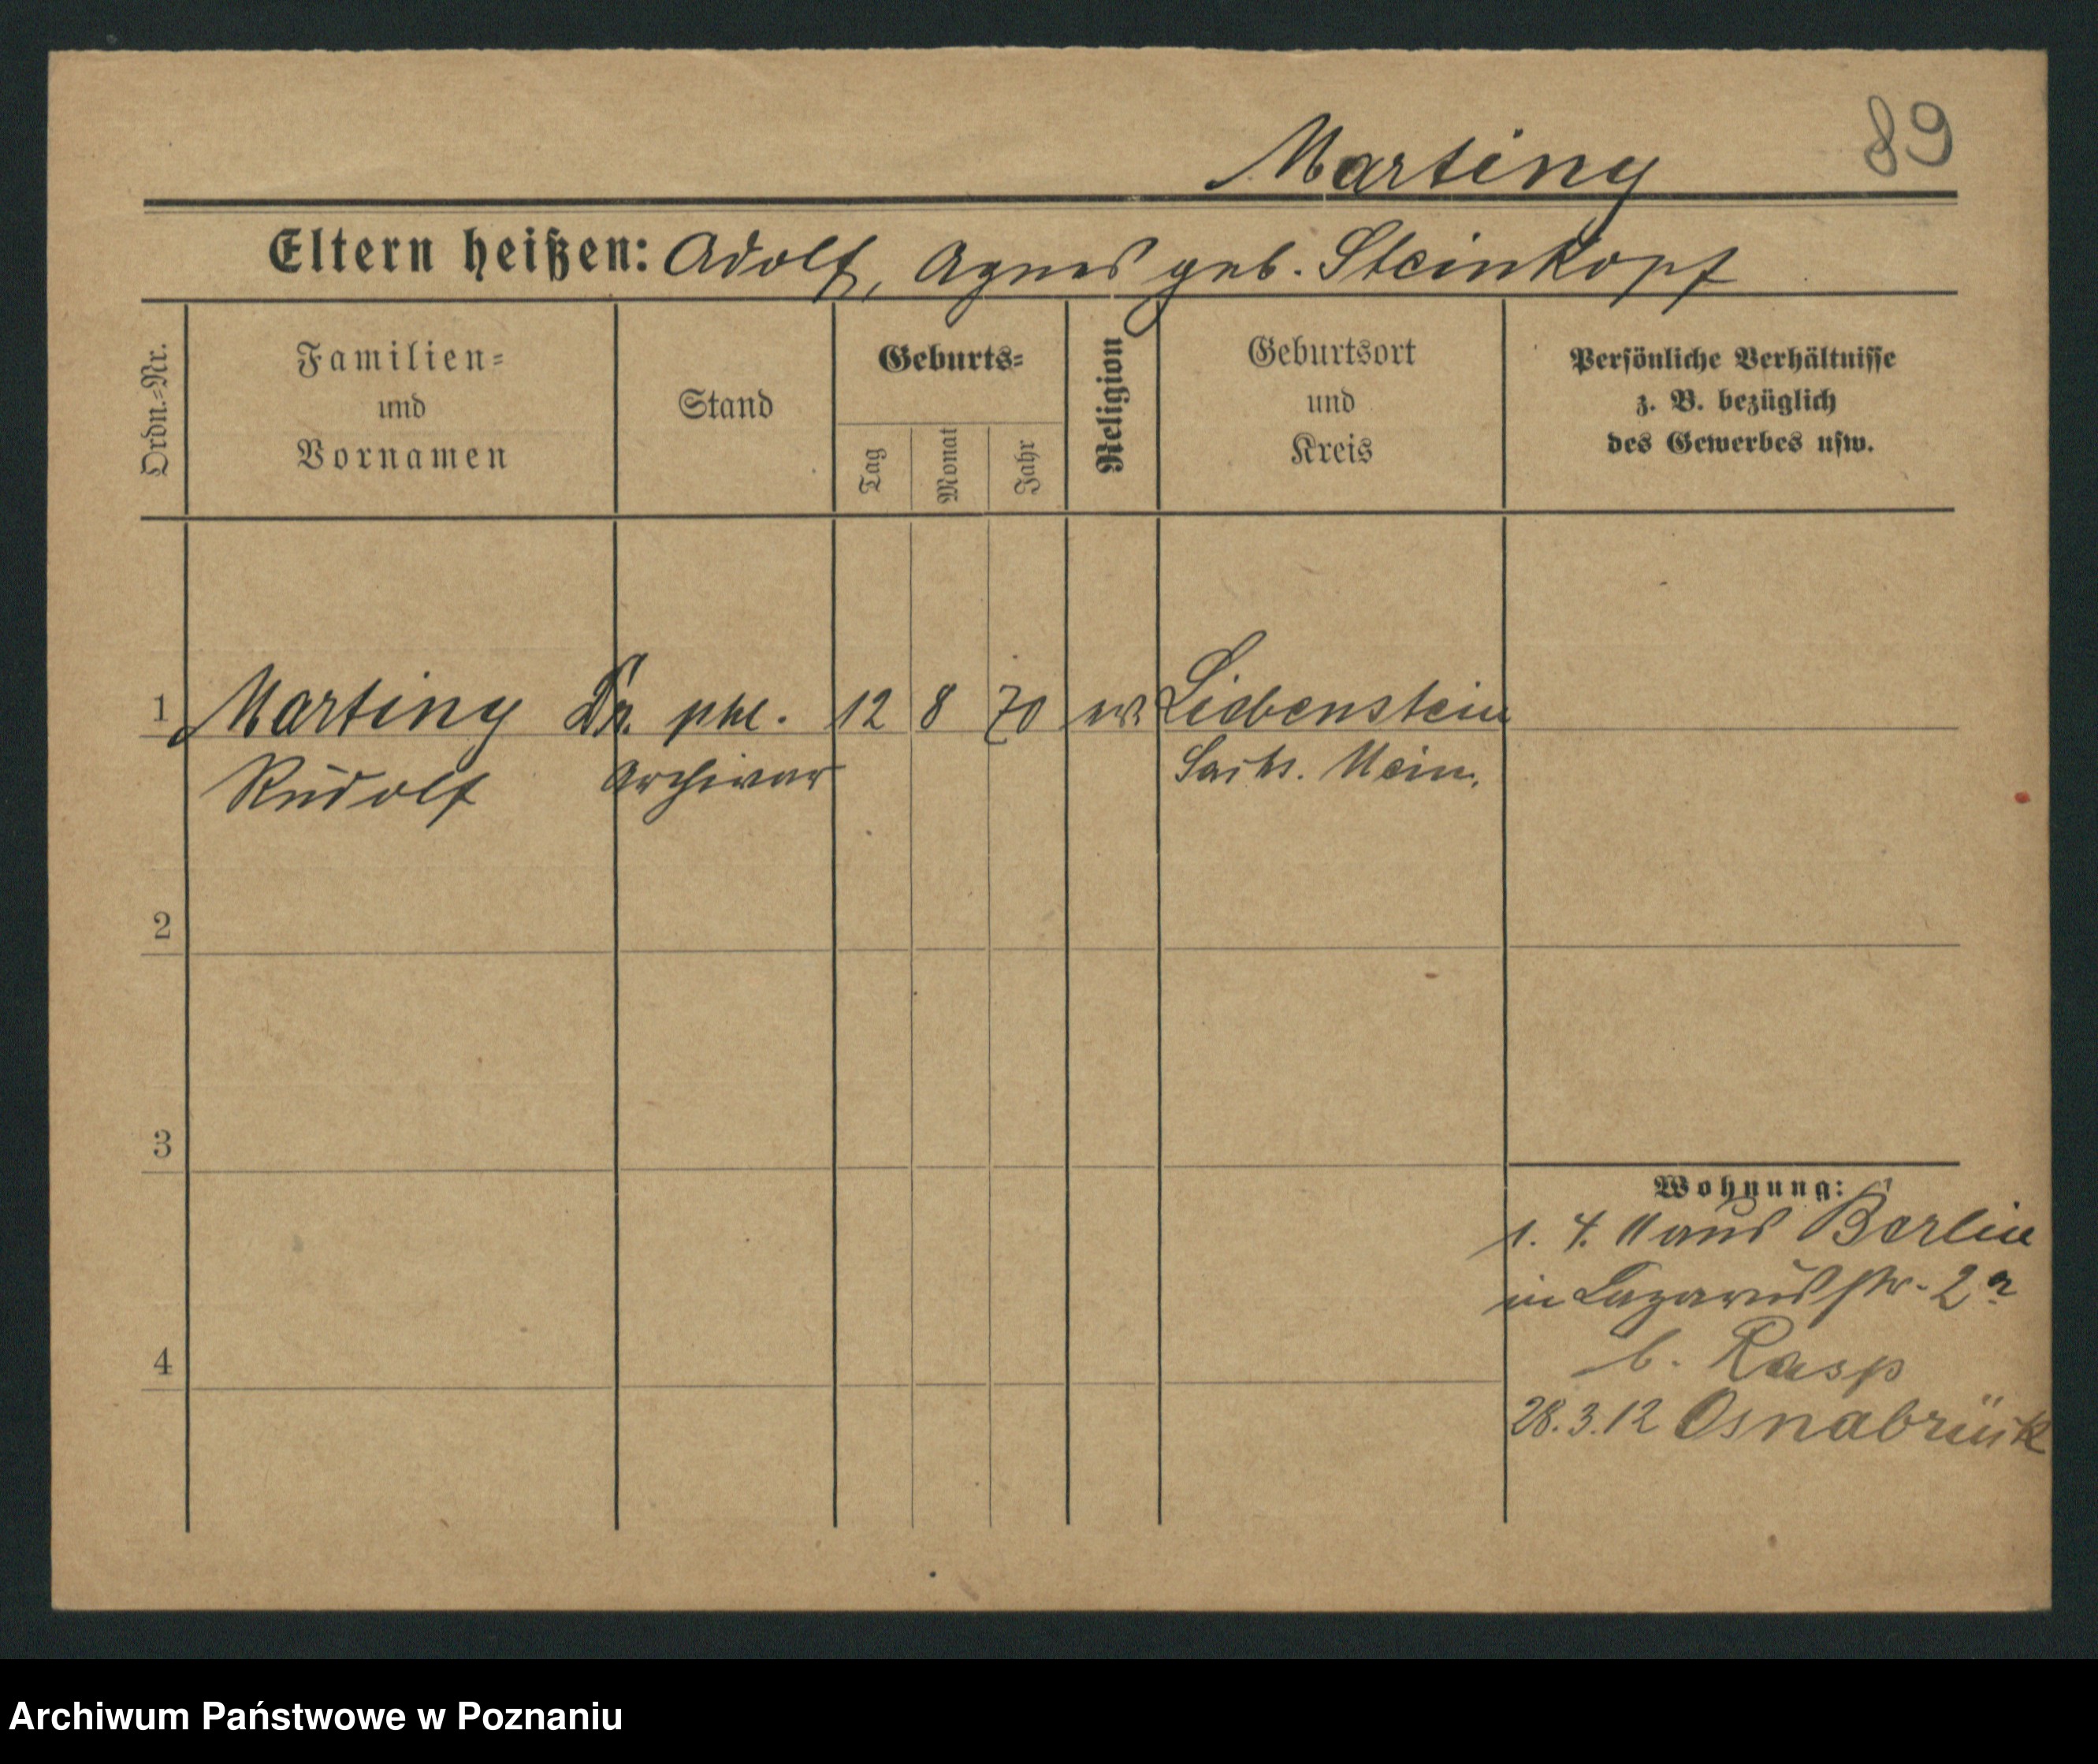 89
Martiny
Eltern heißen: Adolf, Agnes geb. Steinkopf
Ordn.-Nr.
Familien-
und
Vornamen
Stand
Geburts-
Tag
Monat
Jahr
Religion
Geburtsort
und
Kreis
Persönliche Verhältnisse
z. B. bezüglich
des Gewerbes usw.
1 Martiny Dr. phil. 12 8 70 ev. Liebenstein
Rudolf Archivar Sachs. Mein.
2
3
4
Wohnung:
1. 4. 11 aus Berlin
in Lazarusstr. 2a
b. Rasp
28.3.12 Osnabrück
Archiwum Państwowe w Poznaniu